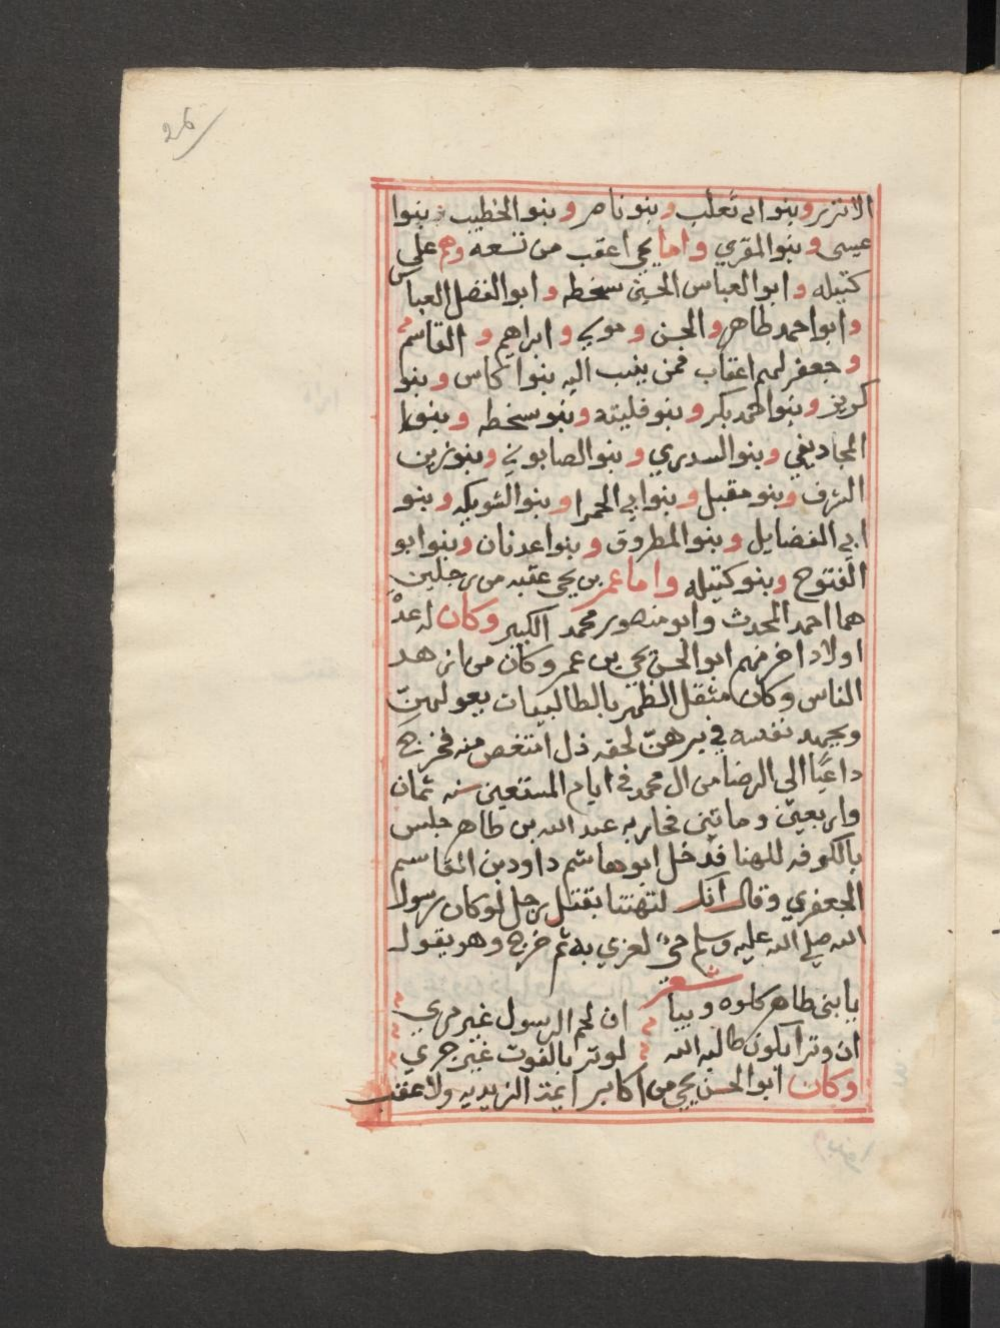 26
الانزير وبنوا ابي تغلب وبنو ناصر وبنو الخطيب وبنوا
عيسى وبنو المقري واما يحيى اعقب من تسعه وهم على
كتيله وابوا العباس الحسين سخطه وابوا الفضل العباس
وابوا احمد طاهر والحسن وموسى وابراهيم والقاسم
وجعفر لهم اعقاب فمن ينسب اليه بنوا كاس وبنو
كريز وبنوا حمد بكر وبنو فليته وبنو سخطه وبنوا
المجاديفي وبنو السدري وبنو الصابوني وبنو زين
الشرف وبنو مقبل وبنوا ابي الحمرا وبنو الشويكه وبنو
ابي الفضايل وبنو المطروق وبنوا عدنان وبنوا ابو
الفتوح وبنو كتيله واما عمر بن يحيى عقبه من رجلين
هما احمد المحدث وابو منصور محمد الكبير وكان له عدة
اولاد اخر منهم ابوا الحسن يحيى بن عمر وكان من ازهد
الناس وكان مثقل الظهر بالطالبيات يعولهن
ويجهد نفسه في برهن لحقه ذل امتغص منه فخرج
داعيا الى الرضا من ال محمد في ايام المستعين سنه ثمان
واربعين وماتين فحاربه عبد الله بن طاهر جلس
بالكوفه للهنا فدخل ابو هاشم داود بن القاسم
الجعفري وقال انك لتهنتنا بقتل رجل لوكان رسول
الله صلي الله عليه وسلم حي لعزي به ثم خرج وهو يقول
شعر
يابني طاهر كلوه وبيا ان لحم الرسول غير مري
ان وترا يكون طالبه الله لوتر بالفوت غير حري
وكان ابوا الحسن يحيى من اكابر ايمة الزيديه ولا عقب
وبنوا